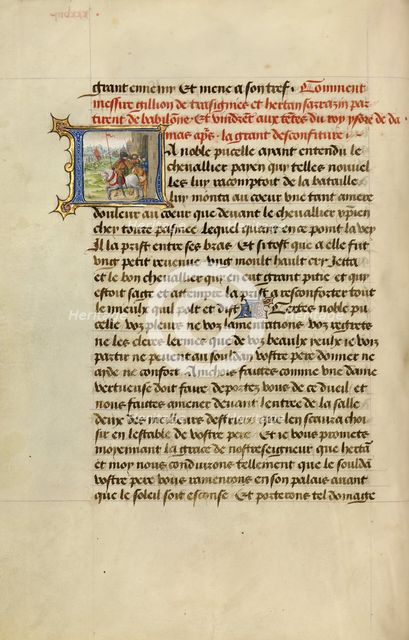 grant ennemy Et mene a son tref · Comment
messire gillion de trasignies et hertan sarrazin par
tirent de babilone · Et vindrent aux tetes du roy ysore de da
mas apres la grant desconfiture ·
La noble pucelle ayant entendu le
chevallier payen quy telles nouvel
les luy racomptoit de la bataille
luy monta au coeur une tant amere
douleur au coeur que devant le chevallier xpien
chey toute pasmee Lequel quant en ce point la vey
Il la prist entre ses bras Et si tost que a elle fut
ung petit revenue ung moult hault cry Jetta
et le bon chevallier quy en eut grant pitie et quy
estoit sage et attempre la prist a resconforter tout
le mieulx quil polt et dist Certes noble pu
celle voz pleurs ne voz lamentations voz regretz
ne les cleres lermes que de voz beaulx yeulx je voy
partir ne peuent au souldan vostre pere donner ne
aide ne confort Ainchois saultes comme une dame
vertueuse doit faire deportez vous de ce dueil et
nous faites amener devant lentree de la salle
deux des meilleurs destriers que len scaura choi
sir en lestable de vostre pere Et je vous promets
moyennant la grace de nostre seigneur que hertan
et moy nous conduirons tellement que le soulda
vostre pere vous ramenrons en son palais avant
que le soleil soit esconse Et porterons tel domage